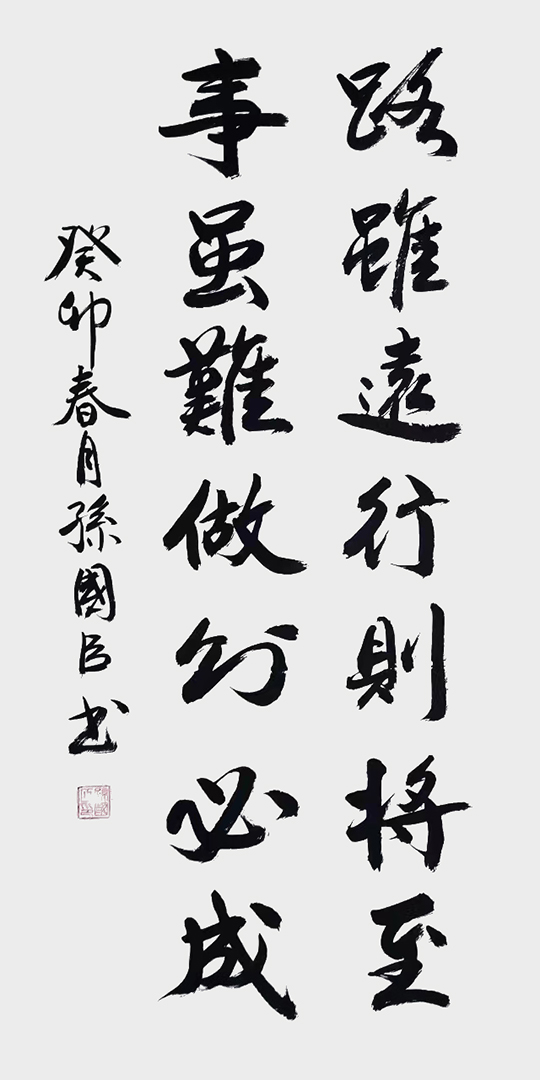 路雖遠行則將至
事虽難做则必成
癸卯春月孫國臣书